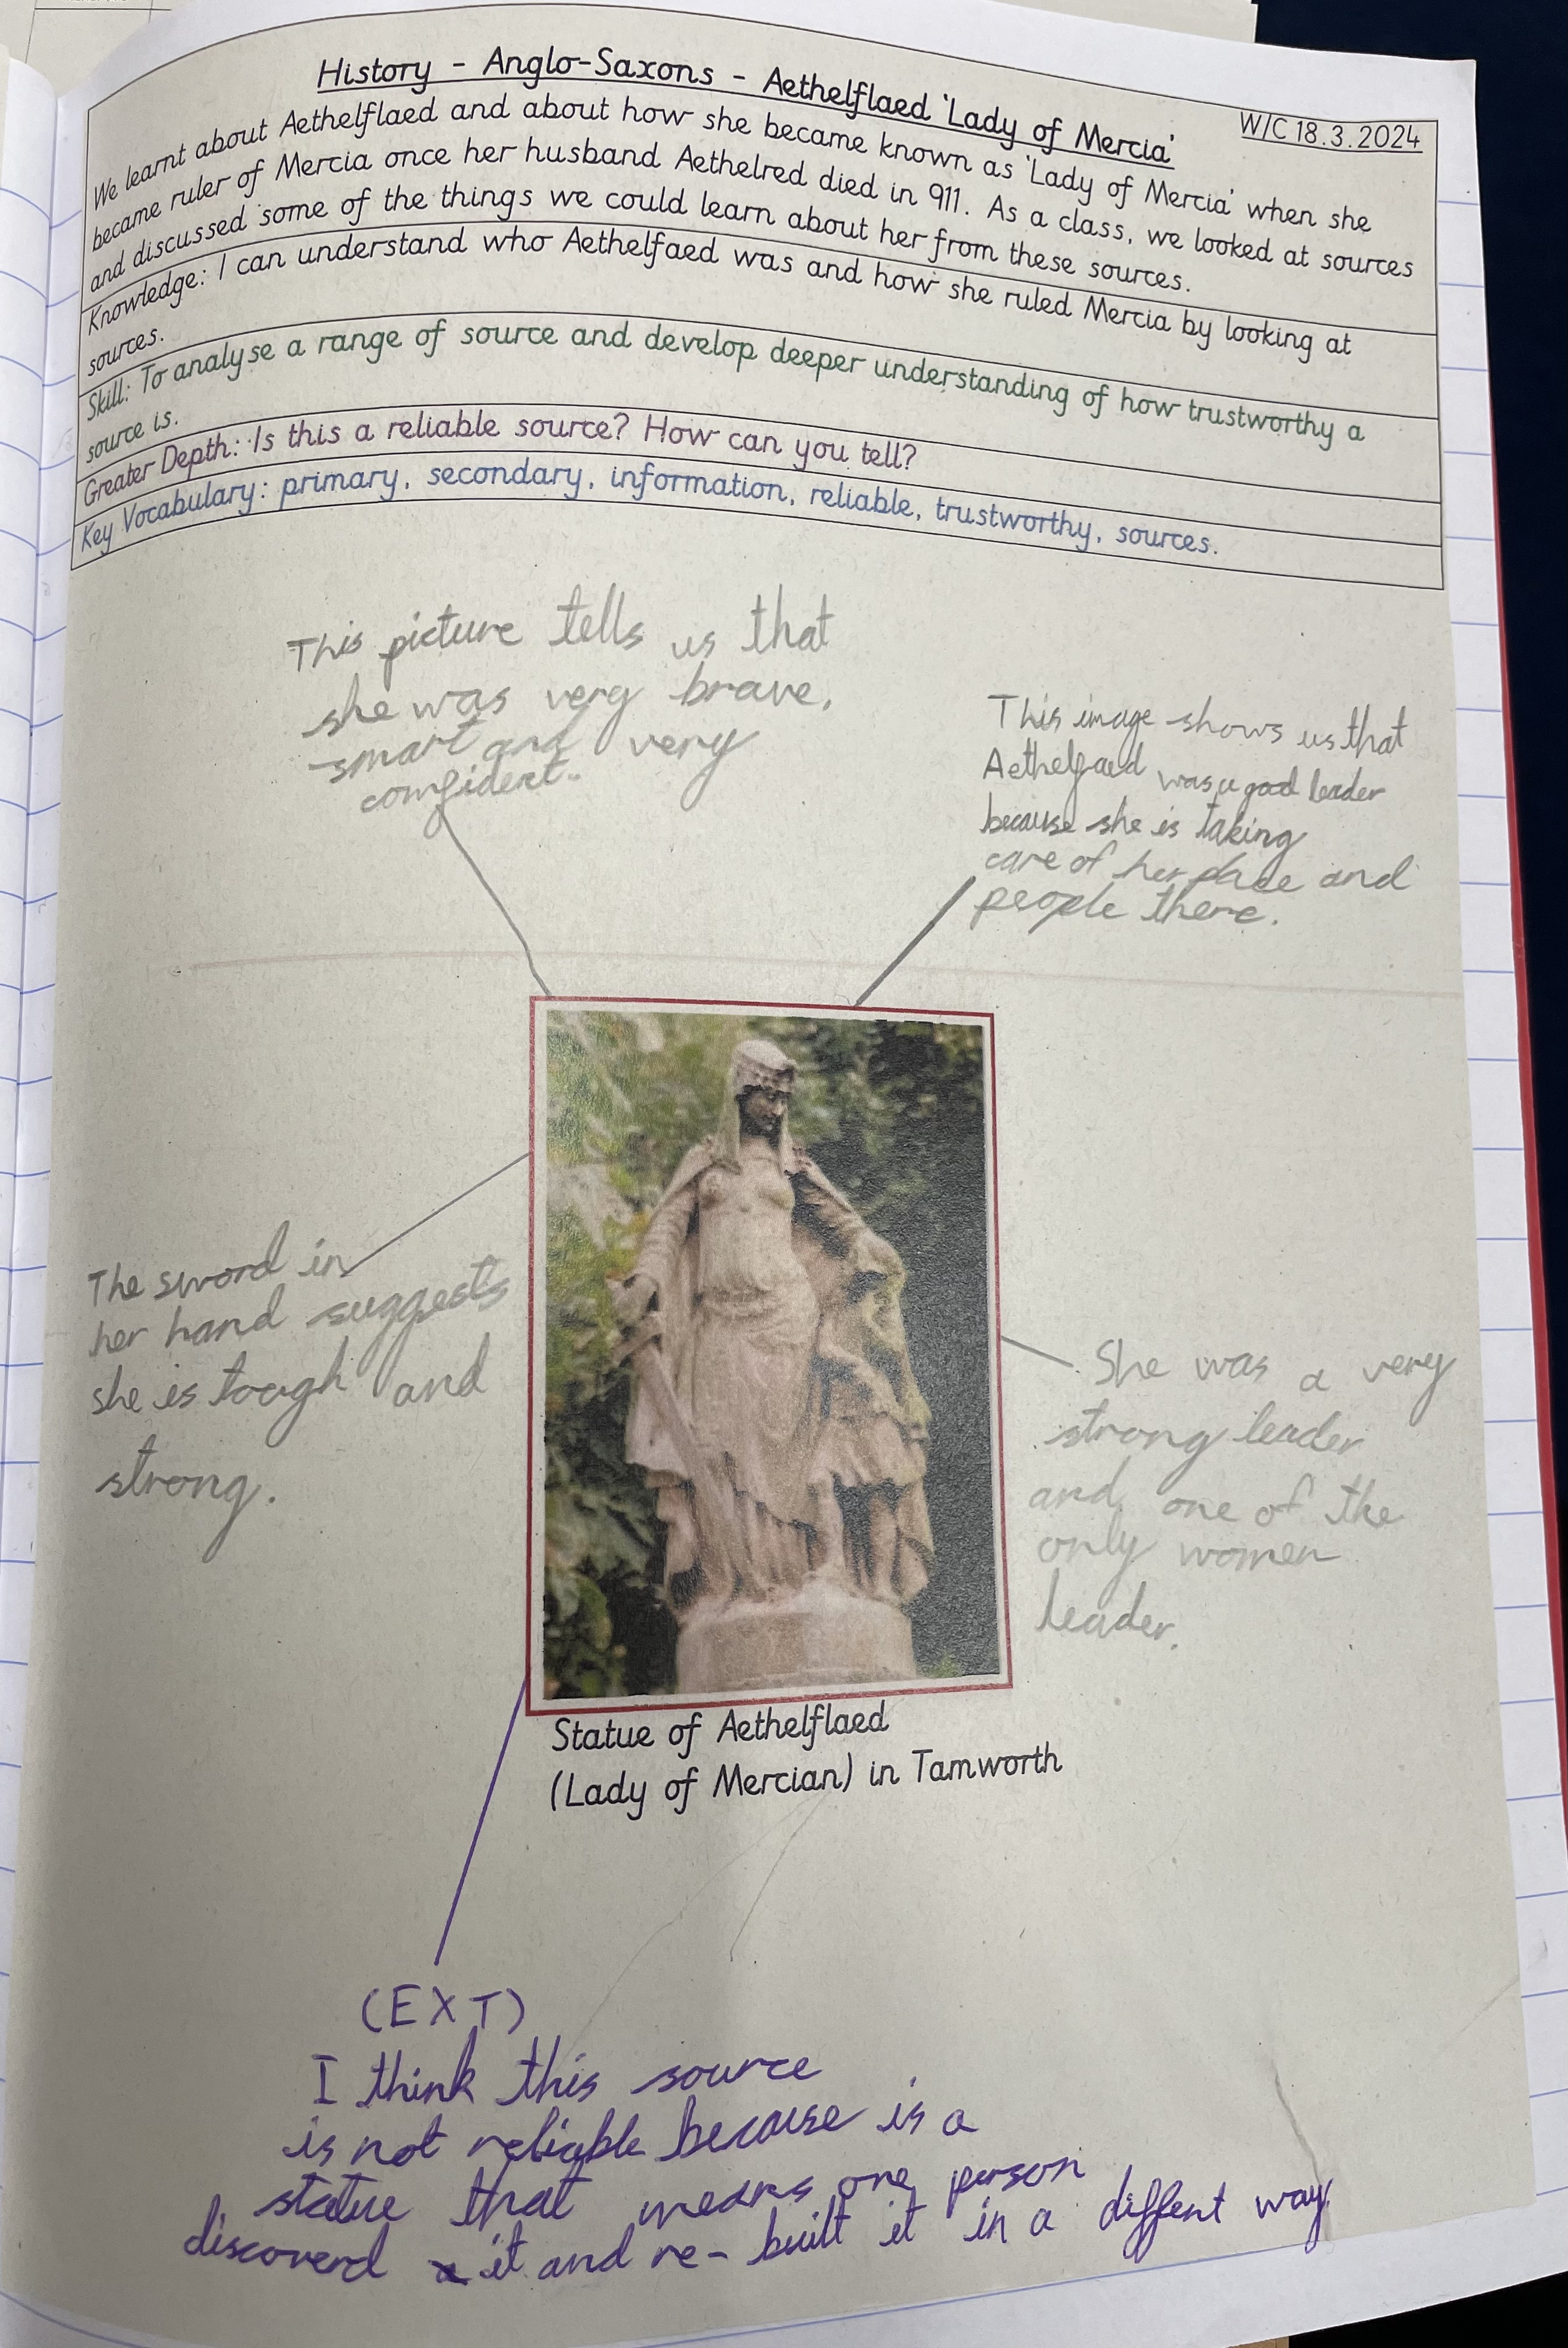 History - Anglo-Saxons - Aethelflaed 'Lady of Mercia'
W/C 18.3.2024
We learnt about Aethelflaed and about how she became known as 'Lady of Mercia' when she
became ruler of Mercia once her husband Aethelred died in 911. As a class, we looked at sources
and discussed some of the things we could learn about her from these sources.
Knowledge: I can understand who Aethelfaed was and how she ruled Mercia by looking at
sources.
Skill: To analyse a range of source and develop deeper understanding of how trustworthy a
source is.
Greater Depth: Is this a reliable source? How can you tell?
Key Vocabulary: primary, secondary, information, reliable, trustworthy, sources.
This picture tells us that
she was very brave,
smart and very
comfident..
This image shows us that
Aethelfaed was a good leader
because she is taking
care of her place and
people there.
The sword in
her hand suggests
she is tough and
strong.
She was a very
strong leader
and one of the
only women
leader.
Statue of Aethelflaed
(Lady of Mercian) in Tamworth
(EXT)
I think this source
is not reliable because is a
statue that means one person
discoverd it and re-built it in a diffent way.